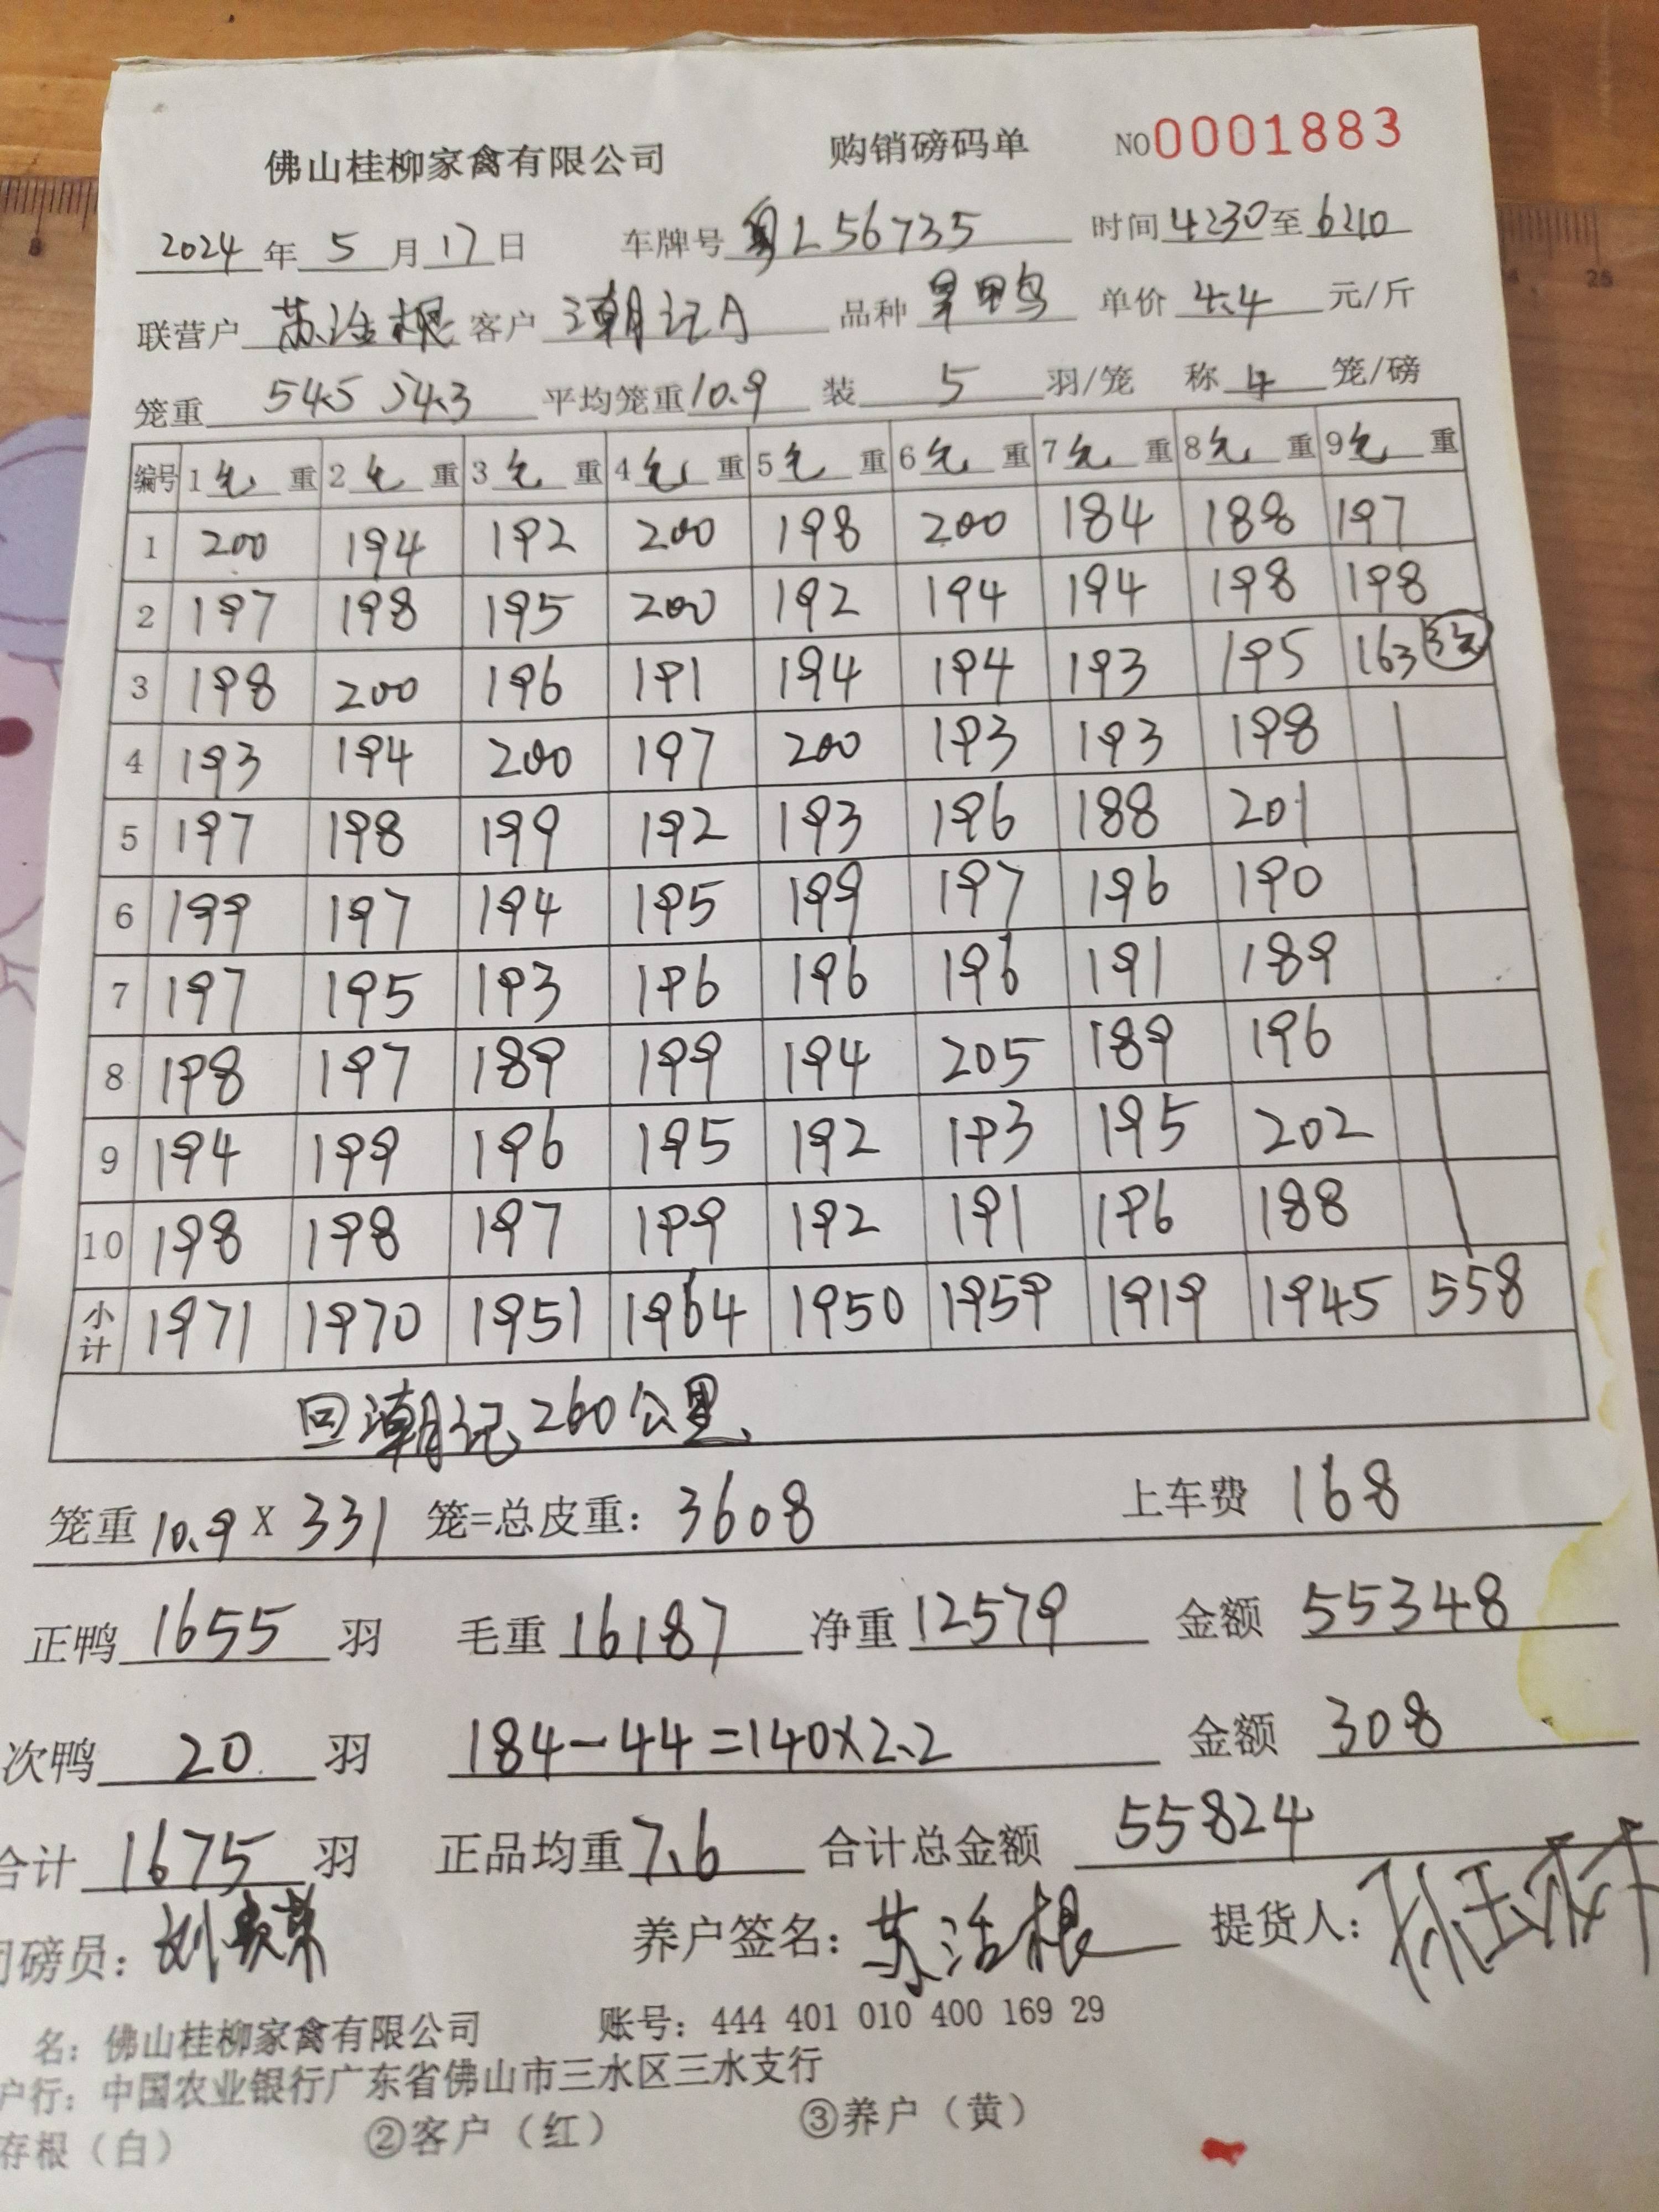 佛山桂柳家禽有限公司 购销磅码单 NO0001883
2024年5月17日 车牌号 粤L56735 时间4230至6210
联营户 苏活根 客户 潮记A 品种 单价 4.4 元/斤
笼重 545 543 平均笼重10.9 装 5 羽/笼 称 4 笼/磅
编号 1 毛 重 2 毛 重 3 毛 重 4 毛 重 5 毛 重 6 毛 重 7 毛 重 8 毛 重 9 毛 重
1 200 194 192 200 198 200 184 188 197
2 197 198 195 200 192 194 194 198 198
3 198 200 196 191 194 194 193 195 163
4 193 194 200 197 200 193 193 198
5 197 198 199 192 193 196 188 201
6 199 197 194 195 199 197 196 190
7 197 195 193 196 196 196 191 189
8 198 197 189 199 194 205 189 196
9 194 199 196 195 192 193 195 202
10 198 198 197 199 192 191 196 188
小计 1971 1970 1951 1964 1950 1959 1919 1945 558
回潮记260公里
笼重10.9X331 笼=总皮重：3608 上车费 168
正鸭 1655 羽 毛重 16187 净重 12579 金额 55348
次鸭 20 羽 184-44=140×2.2 金额 308
合计 1675 羽 正品均重 7.6 合计总金额 55824
司磅员： 养户签名：苏活根 提货人：
名：佛山桂柳家禽有限公司 账号：444 401 010 400 169 29
户行：中国农业银行广东省佛山市三水区三水支行
存根（白） ②客户（红） ③养户（黄）